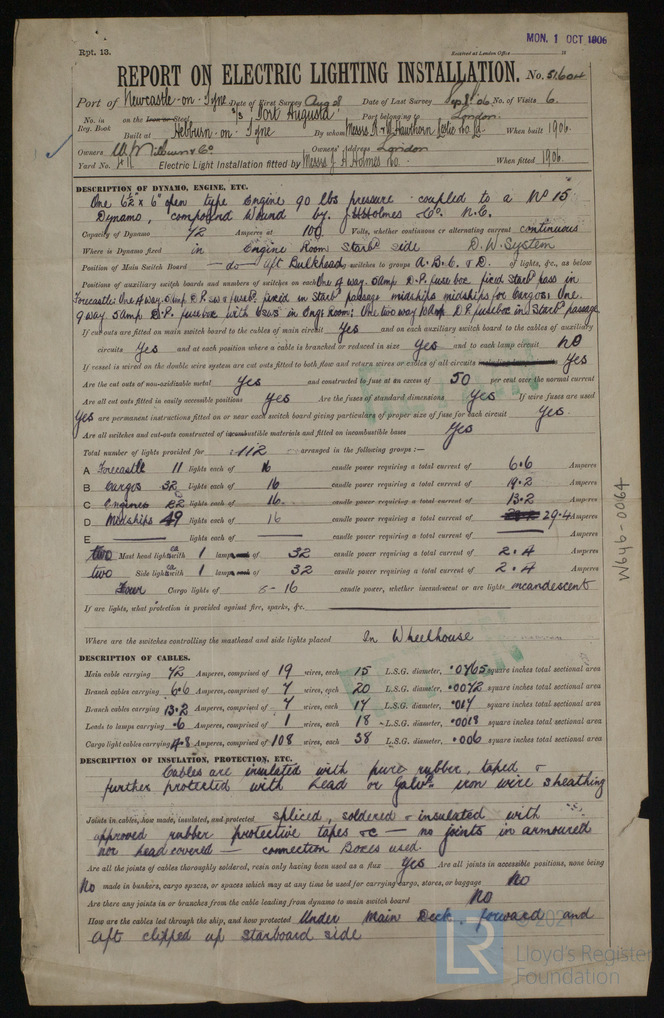 MON. 1 OCT 1906
Rpt. 13.
Received at London Office 18
REPORT ON ELECTRIC LIGHTING INSTALLATION. No. 51604
Port of Newcastle-on-Tyne Date of First Survey Aug 8 Date of Last Survey Sep 8th 06 No. of Visits 6.
No. in Reg. Book on the Iron or Steel S/S "Port Augusta" Port belonging to London
Built at Hebburn-on Tyne By whom Messrs R & W Hawthorn Leslie Co. Ld. When built 1906.
Owners W. Milburn & Co Owners' Address London
Yard No. Electric Light Installation fitted by Messrs J. H. Holmes Co. When fitted 1906.
DESCRIPTION OF DYNAMO, ENGINE, ETC.
One 6½" x 6" open type Engine 90 lbs pressure coupled to a No 15
Dynamo, compound Wound by J H Holmes & Co. N.C.
Capacity of Dynamo 72 Amperes at 100 Volts, whether continuous or alternating current continuous
Where is Dynamo fixed in Engine Room Starbd side D. W. System
Position of Main Switch Board — do — aft Bulkhead having switches to groups A. B. C. & D. of lights, &c., as below
Positions of auxiliary switch boards and numbers of switches on each One 4 way. 5 amp D.P. fuse box fixed Starbd pass in
Forecastle One 4 way. 5 amp D.P. sw & fusebx. fixed in Starbd passage midships for Cargos; One
9 way 5 amp D.P. fusebox with swrs in Eng: room; One two way 10 amp D.P. fusebox in Starbd passage
If cut outs are fitted on main switch board to the cables of main circuit Yes and on each auxiliary switch board to the cables of auxiliary
circuits Yes and at each position where a cable is branched or reduced in size Yes and to each lamp circuit no
If vessel is wired on the double wire system are cut outs fitted to both flow and return wires or cables of all circuits Yes
Are the cut outs of non-oxidizable metal Yes and constructed to fuse at an excess of 50 per cent over the normal current
Are all cut outs fitted in easily accessible positions Yes Are the fuses of standard dimensions Yes If wire fuses are used
Yes are permanent instructions fitted on or near each switch board giving particulars of proper size of fuse for each circuit Yes.
Are all switches and cut-outs constructed of incombustible materials and fitted on incombustible bases Yes
Total number of lights provided for 112 arranged in the following groups :—
A Forecastle 11 lights each of 16 candle power requiring a total current of 6.6 Amperes
B Cargos 32 lights each of 16 candle power requiring a total current of 19.2 Amperes
C Engines 22 lights each of 16. candle power requiring a total current of 13.2 Amperes
D Midships 49 lights each of 16 candle power requiring a total current of 29.4 Amperes
E lights each of candle power requiring a total current of Amperes
two Mast head lights with 1 lamp ea of 32 candle power requiring a total current of 2.4 Amperes
two Side lights with 1 lamp ea of 32 candle power requiring a total current of 2.4 Amperes
Four Cargo lights of 8 - 16 candle power, whether incandescent or arc lights incandescent
If arc lights, what protection is provided against fire, sparks, &c.
Where are the switches controlling the masthead and side lights placed In Wheelhouse
DESCRIPTION OF CABLES.
Main cable carrying 72 Amperes, comprised of 19 wires, each 15 L.S.G. diameter, .0765 square inches total sectional area
Branch cables carrying 6.6 Amperes, comprised of 7 wires, each 20 L.S.G. diameter, .0072 square inches total sectional area
Branch cables carrying 13.2 Amperes, comprised of 7 wires, each 17 L.S.G. diameter, .017 square inches total sectional area
Leads to lamps carrying .6 Amperes, comprised of 1 wires, each 18 L.S.G. diameter, .0018 square inches total sectional area
Cargo light cables carrying 4.8 Amperes, comprised of 108 wires, each 38 L.S.G. diameter, .006 square inches total sectional area
DESCRIPTION OF INSULATION, PROTECTION, ETC.
Cables are insulated with pure rubber, taped &
further protected with Lead or Galvd. iron wire sheathing
Joints in cables, how made, insulated, and protected spliced, soldered & insulated with
approved rubber protective tapes &c — no joints in armoured
nor lead covered — connection Boxes used.
Are all the joints of cables thoroughly soldered, resin only having been used as a flux Yes Are all joints in accessible positions, none being
No made in bunkers, cargo spaces, or spaces which may at any time be used for carrying cargo, stores, or baggage No
Are there any joints in or branches from the cable leading from dynamo to main switch board No
How are the cables led through the ship, and how protected Under Main Deck, forward and
aft clipped up Starboard side
W646-0064
© 2021
LR
Lloyd's Register
Foundation